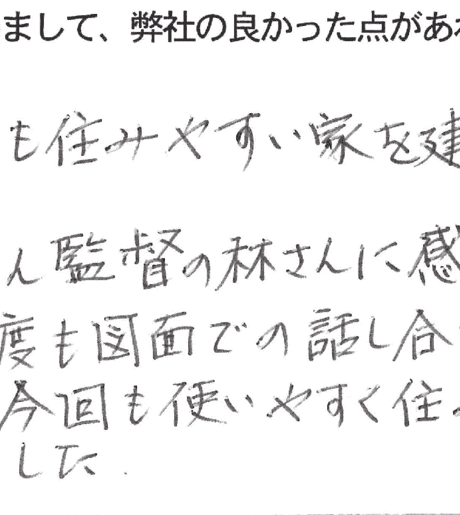 まして、弊社の良かった点があ
も住みやすい家を建
ん監督の林さんに感
度も図面での話し合
今回も使いやすく住
した.